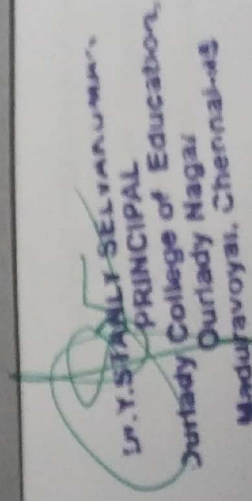 Dr. Y. STANLY SELVAKUMAR.
PRINCIPAL
Ourlady College of Education,
Ourlady Nagar
Maduravoyal, Chennai-95